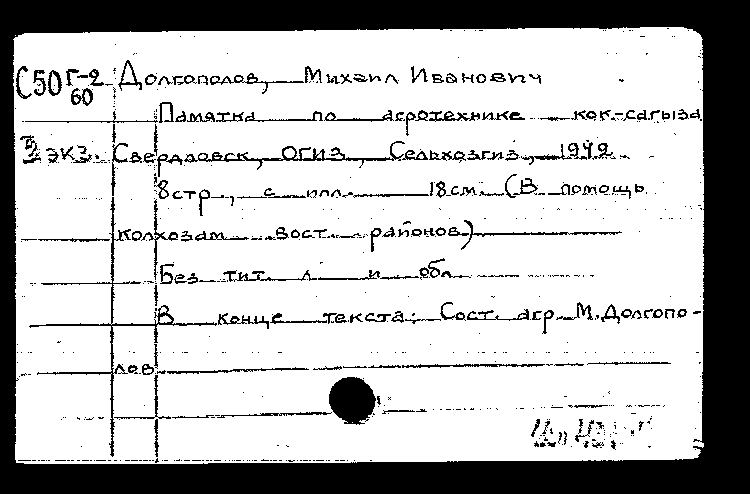 С50 Г-2 Долгополов, Михаил Иванович
60
Памятка по агротехнике кок-сагыза
экз. Свердловск, ОГИЗ, Сельхозгиз, 1942.
8стр., с илл. 18см. (В помощь
колхозам вост. районов)
Без тит. л. и обл.
В конце текста: Сост. агр. М.Долгопо-
лов